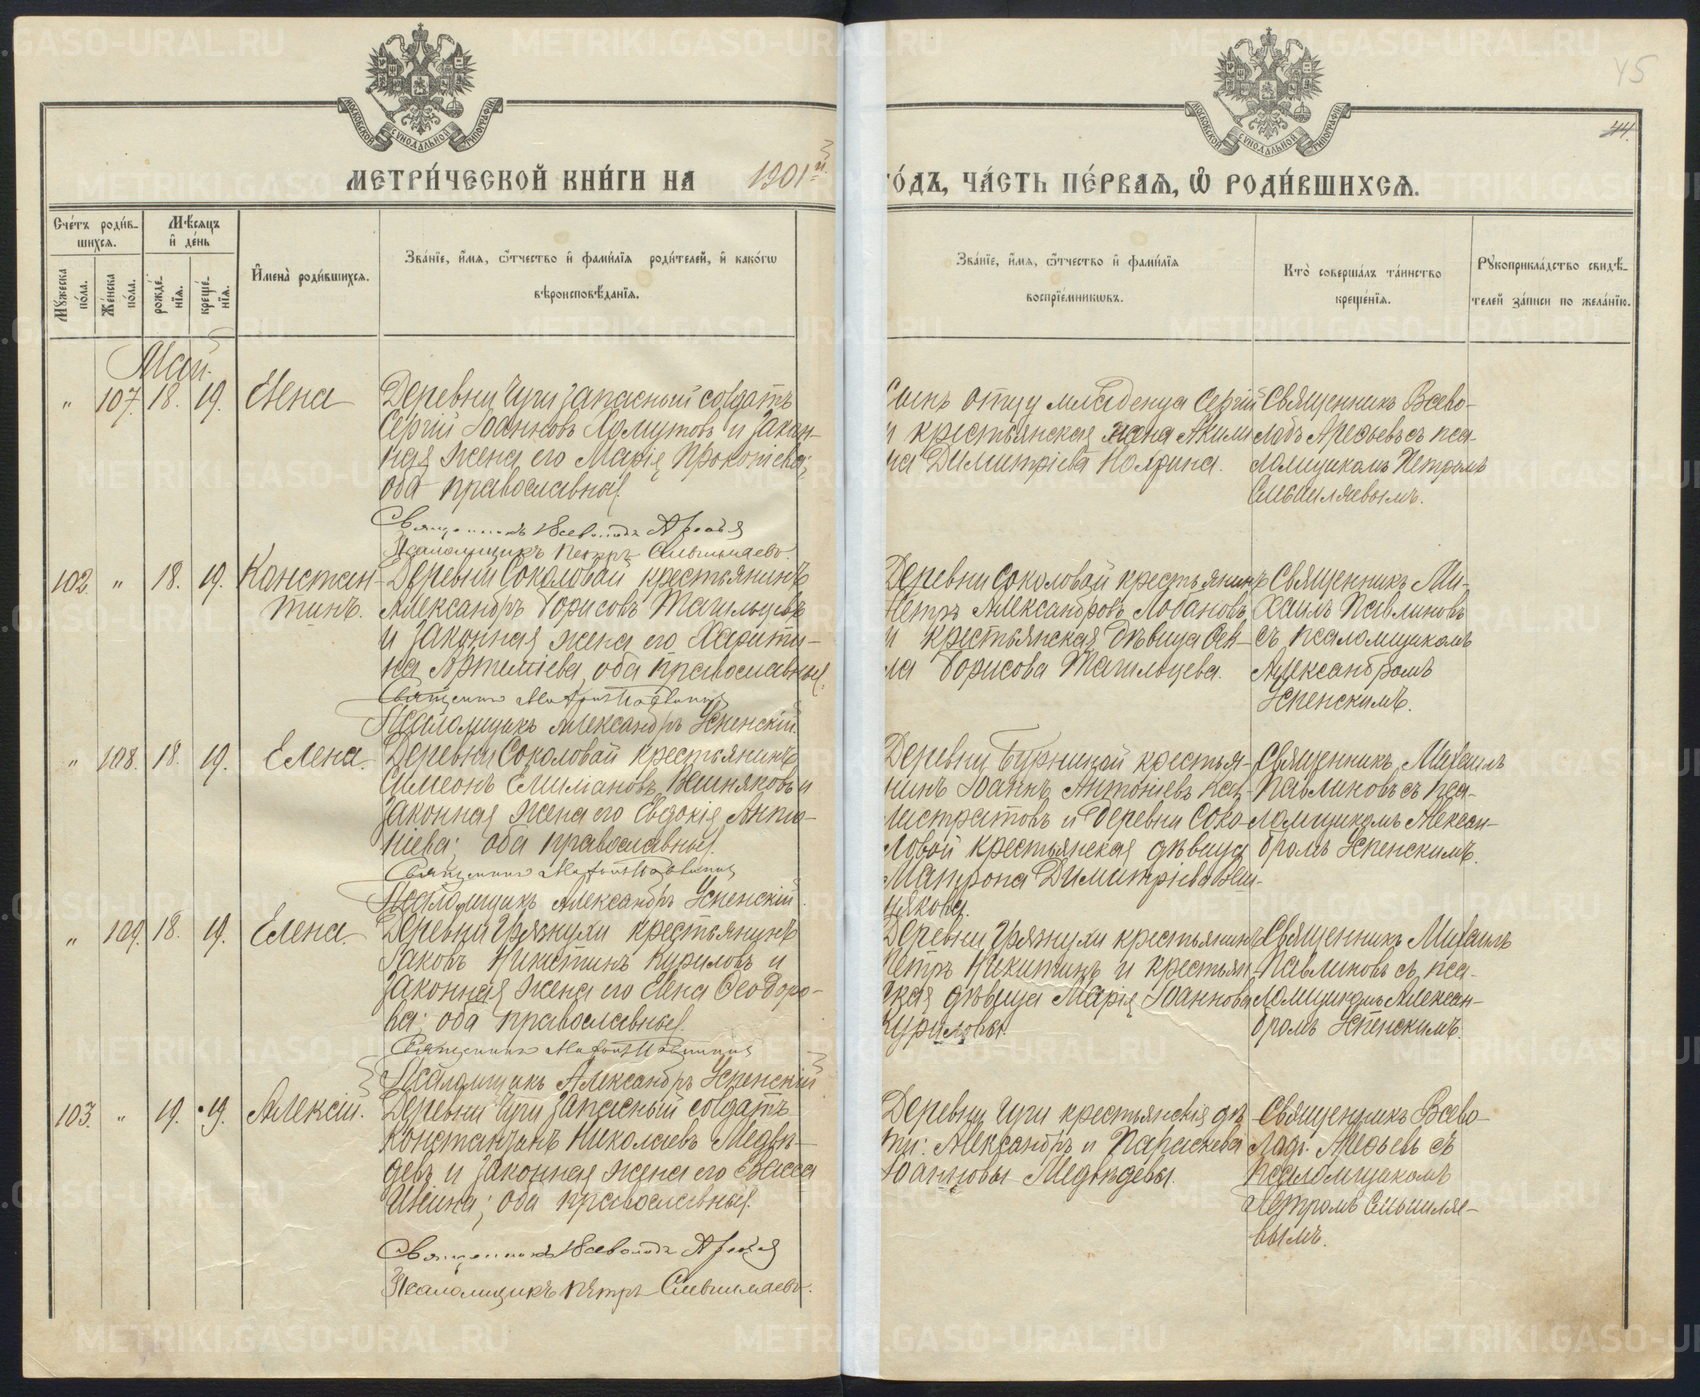 METRIKI.GASO-URAL.RU
45
44.
МОСКОВСКОЙ СѴНОДАЛЬНОЙ ТИПОГРАФІИ
МЕТРИ́ЧЕСКОЙ КНИ́ГИ НА 1901й
ГО́ДЪ, ЧА́СТЬ ПЕ́РВАѦ, Ѽ РОДИ́ВШИХСѦ.
Сче́тъ роди́вшихся.
Мѣ́сяцъ и҆ де́нь
Мꙋ́жеска по́ла.
Же́нска по́ла.
рожде́нїѧ.
креще́нїѧ.
И҆мена̀ роди́вшихсѧ.
Зва́нїе, и҆́мѧ, ѻ҆́тчество и҆ фами́лїѧ роди́телей, и҆ како́гѡ
вѣроисповѣ́данїѧ.
Зва́нїе, и҆́мѧ, ѻ҆́тчество и҆ фами́лїѧ
воспрїе́мникѡвъ.
Кто̀ соверша́лъ та́инство
креще́нїѧ.
Рꙋкоприкла́дство свидѣ́-
телей за́писи по жела́нїю.
Май.
" 107. 18. 19. Елена
Деревни Чуги запасный солдатъ
Сергій Іоанновъ Хомутовъ и закон-
ная жена его Марія Прокопіева;
оба православныя.
Священникъ Всеволодъ Арефьев
Псаломщикъ Петръ
Сынъ отцу младенца Сергій
и крестьянская жена Акили
на Димитріева
Священникъ Всево-
лодъ Арефьевъ съ пса-
ломщикомъ Петромъ
102. " 18. 19. Констан-
тинъ.
Деревни Соколовой крестьянинъ
Александръ Борисовъ Тагильцевъ
и законная жена его Харити-
на Артеміева, оба православныя.
Священникъ Михаил Павлинов
Псаломщикъ Александръ Успенскій.
Деревни Соколовой крестьянинъ
Петръ Александровъ Лобановъ,
и крестьянская дѣвица
Борисова Тагильцева.
Священникъ Ми-
хаилъ Павлиновъ
съ псаломщикомъ
Александромъ
Успенскимъ.
" 108. 18. 19. Елена.
Деревни Соколовой крестьянинъ
Симеонъ Вешняковъ и
законная жена его Евдокія Анто-
ніева; оба православныя.
Священник Михаил Павлинов
Псаломщикъ Александръ Успенскій.
Деревни крестья-
нинъ Іоаннъ Антоніевъ Кал-
листратовъ и деревни Соко-
ловой крестьянская дѣвица
Матрона Димитріева Веш-
някова.
Священникъ Михаилъ
Павлиновъ съ пса-
ломщикомъ Алексан-
дромъ Успенскимъ.
" 109. 18. 19. Елена.
Деревни Грязнухи крестьянинъ
Іаковъ Никитинъ Куриловъ и
законная жена его Елена Ѳеодоро-
ва; оба православныя.
Священник Михаил Павлинов
Псаломщикъ Александръ Успенскій
Деревни Грязнухи крестьянинъ
Петръ Никитинъ и крестьян-
ская дѣвица Марія Іоаннова
Куриловы.
Священникъ Михаилъ
Павлиновъ съ пса-
ломщикомъ Алексан-
дромъ Успенскимъ.
103. " 19. 19. Алексій.
Деревни Чуги запасный солдатъ
Константинъ Николаевъ Медвѣ-
девъ и законная жена его Васса
оба православныя.
Священникъ Всеволодъ Арефьев
Псаломщикъ Петръ
Деревни Чуги крестьянскія дѣ-
ти: Александръ и Параскева
Іоанновы Медвѣдевы.
Священникъ Всево-
лодъ Арефьевъ съ
псаломщикомъ
Петромъ